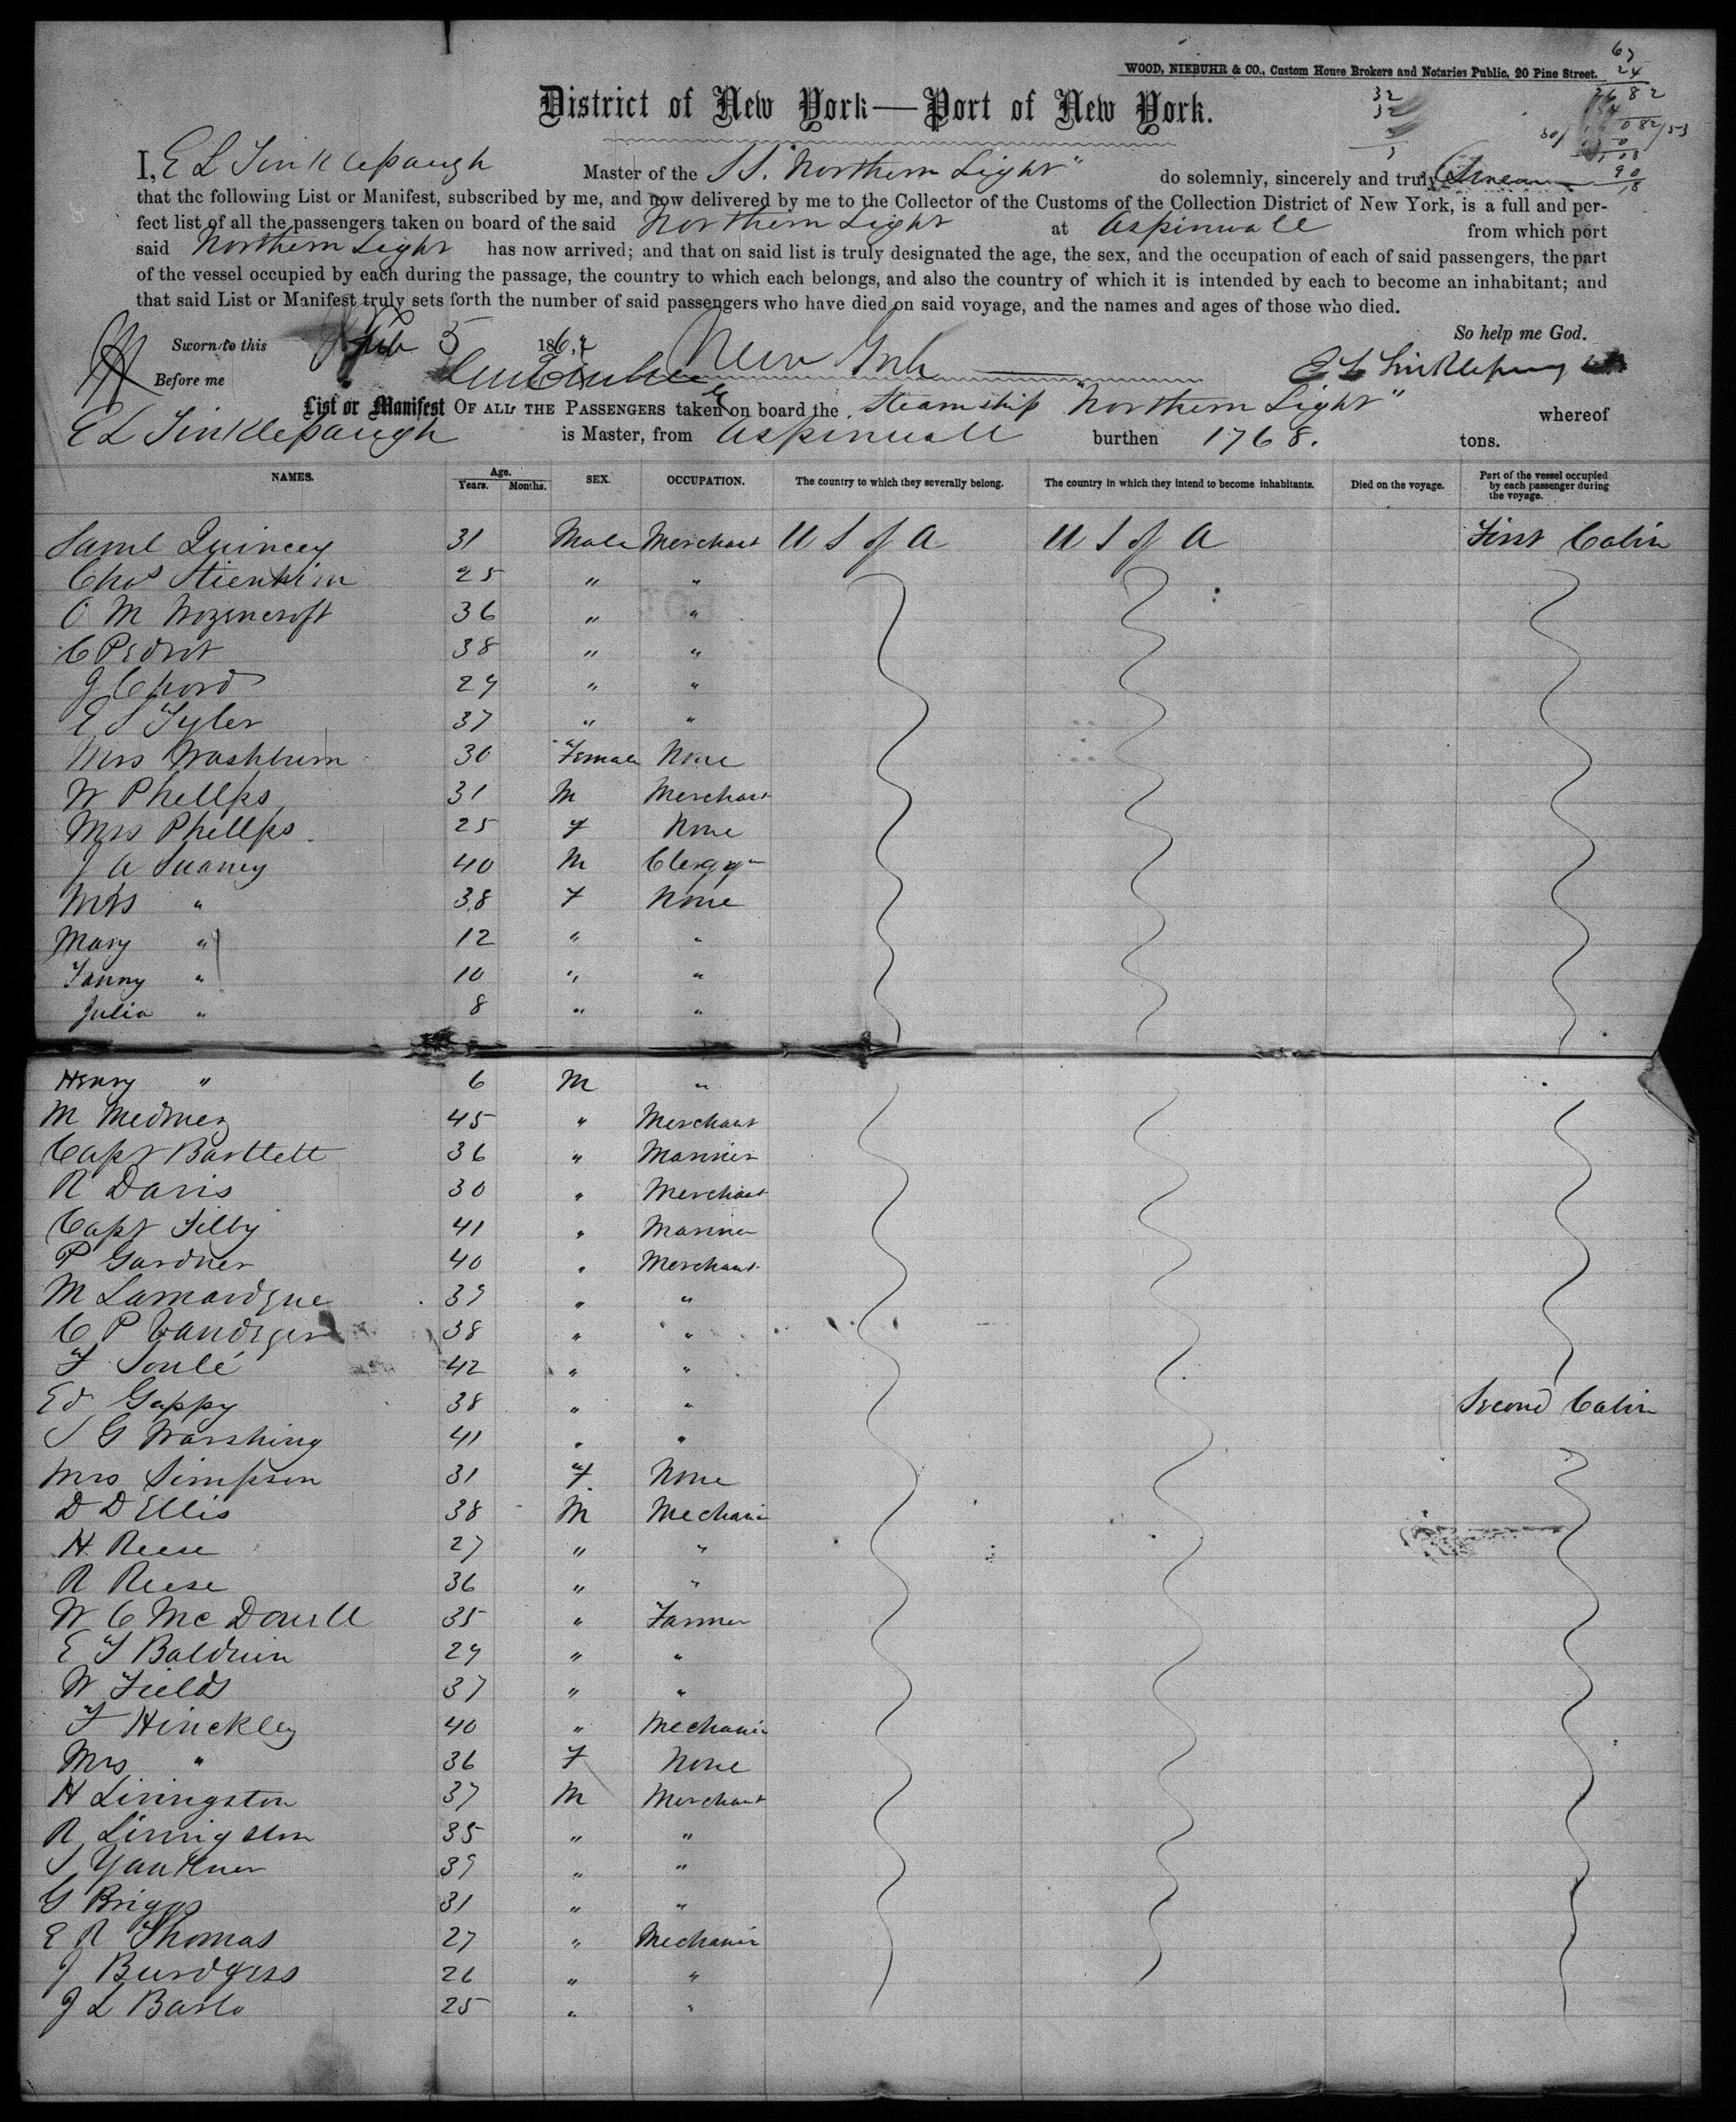 WOOD, NIEBUHR & CO., Custom House Brokers and Notaries Public, 20 Pine Street.
District of New York—Port of New York.
I, E L Tinklepaugh Master of the SS. "Northern Light" do solemnly, sincerely and truly Swear
that the following List or Manifest, subscribed by me, and now delivered by me to the Collector of the Customs of the Collection District of New York, is a full and per-
fect list of all the passengers taken on board of the said Northern Light at Aspinwall from which port
said Northern Light has now arrived; and that on said list is truly designated the age, the sex, and the occupation of each of said passengers, the part
of the vessel occupied by each during the passage, the country to which each belongs, and also the country of which it is intended by each to become an inhabitant; and
that said List or Manifest truly sets forth the number of said passengers who have died on said voyage, and the names and ages of those who died.
So help me God.
Sworn to this Feb 5 1862 New York
Before me E L Tinklepaugh
List or Manifest OF ALL THE PASSENGERS taken on board the Steamship "Northern Light" whereof
E L Tinklepaugh is Master, from Aspinwall burthen 1768. tons.
NAMES. Age. Years. Months. SEX. OCCUPATION. The country to which they severally belong. The country in which they intend to become inhabitants. Died on the voyage. Part of the vessel occupied by each passenger during the voyage.
Saml Quincey 31 Male Merchant U S of A U S of A First Cabin
Chas 25 " "
O M Wozencroft 36 " "
C 38 " "
J 29 " "
E S Tyler 37 " "
Mrs Washburn 30 Female None
W Phellps 31 M Merchant
Mrs Phellps 25 F None
J A 40 M Clergyn
Mrs " 38 F None
Mary " 12 " "
Fanny " 10 " "
Julia " 8 " "
Henry " 6 M "
M 45 " Merchant
Capt Bartlett 36 " Mariner
R Davis 30 " Merchant
Capt Tilby 41 " Mariner
P Gardner 40 " Merchant
M 39 " "
C P 38 " "
F Soulé 42 " "
Ed Gappy 38 " " Second Cabin
S G Warshing 41 " "
Mrs Simpson 31 F None
D D Ellis 38 M Mechanic
H. Reese 27 " "
R Reese 36 " "
W C McDowell 35 " Farmer
E T Baldwin 29 " "
W Fields 37 " "
F Hinckley 40 " Mechanic
Mrs " 36 F None
H Livingston 37 M Merchant
R Livingston 35 " "
S 39 " "
G Briggs 31 " "
E R Thomas 27 " Mechanic
J Burdgess 26 " "
J L Barlo 25 " "